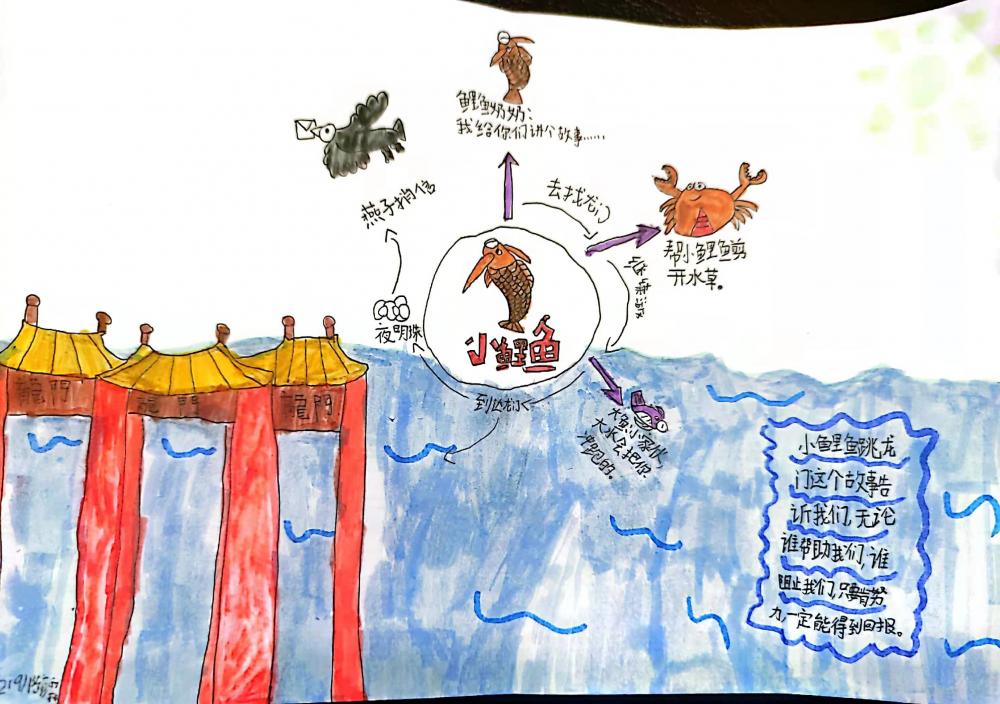 鲤鱼奶奶:
我给你们讲个故事……
去找龙门
燕子捎信
帮小鲤鱼剪
开水草。
夜明珠
小鲤鱼
到达龙门
大鱼:小家伙,
大水会把你
冲跑的。
龍門
龍門
龍門
小鲤鱼跳龙
门这个故事告
诉我们,无论
谁帮助我们,谁
阻止我们,只要肯努
力一定能得到回报。